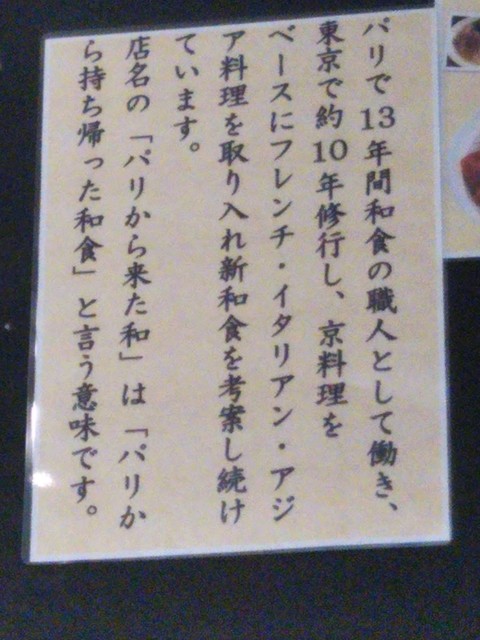 パリで13年間和食の職人として働き、
東京で約10年修行し、京料理を
ベースにフレンチ・イタリアン・アジ
ア料理を取り入れ新和食を考案し続け
ています。
店名の「パリから来た和」は「パリか
ら持ち帰った和食」と言う意味です。